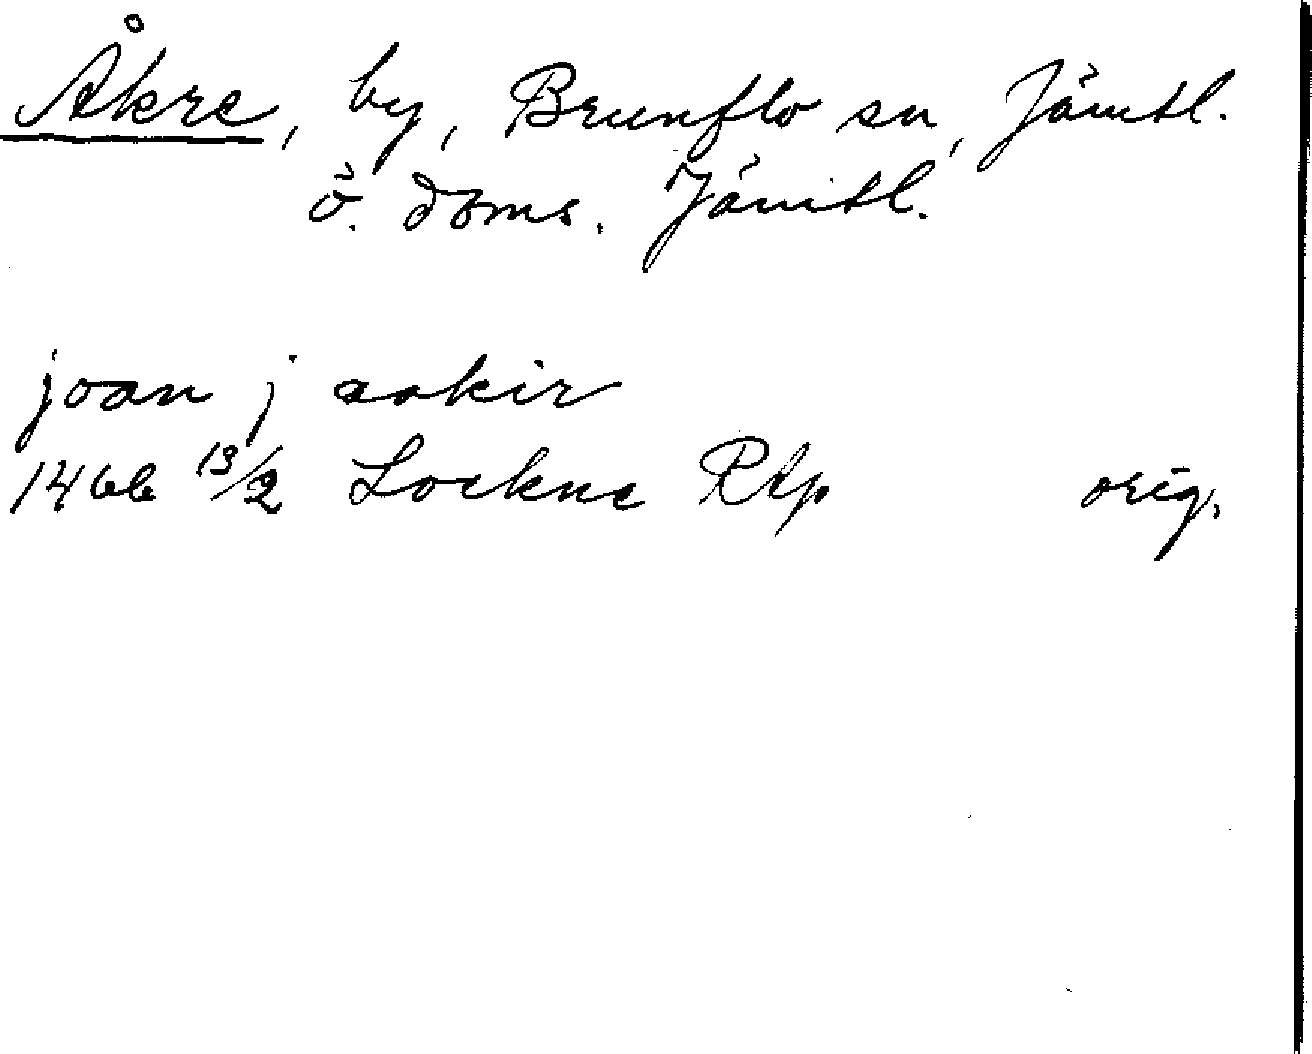 Åkre, by, Brunflo sn, Jämtl.
ö. doms. Jämtl.
joan j aakir
1466 13/2 Lockne RAp orig.